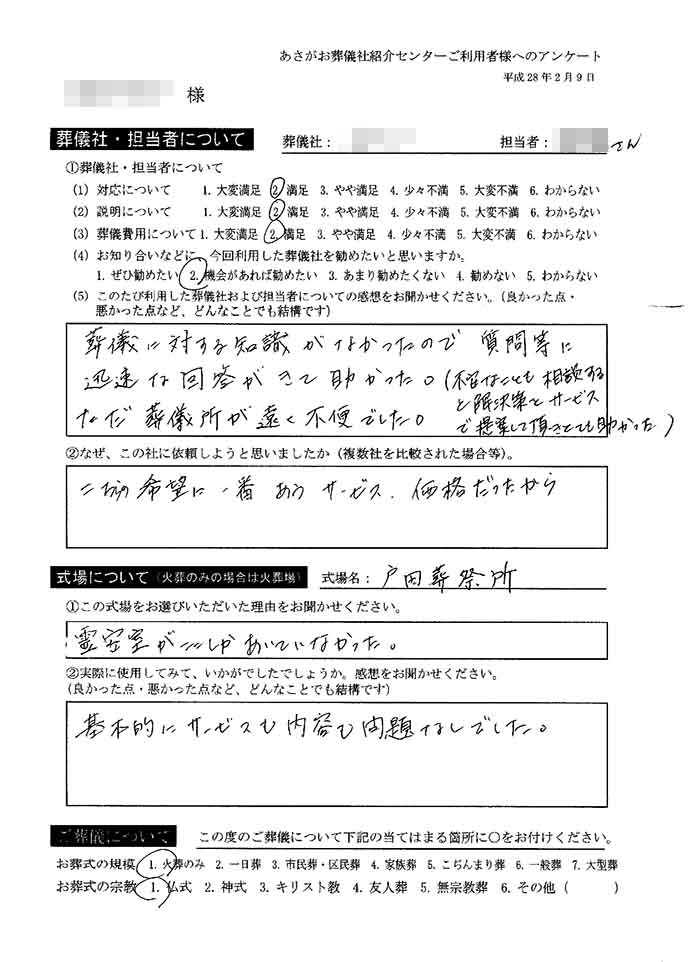 あさがお葬儀社紹介センターご利用者様へのアンケート
平成28年2月9日
様
葬儀社・担当者について 葬儀社： 担当者： さん
①葬儀社・担当者について
(1) 対応について 1. 大変満足 2. 満足 3. やや満足 4. 少々不満 5. 大変不満 6. わからない
(2) 説明について 1. 大変満足 2. 満足 3. やや満足 4. 少々不満 5. 大変不満 6. わからない
(3) 葬儀費用について 1. 大変満足 2. 満足 3. やや満足 4. 少々不満 5. 大変不満 6. わからない
(4) お知り合いなどに、今回利用した葬儀社を勧めたいと思いますか。
1. ぜひ勧めたい 2. 機会があれば勧めたい 3. あまり勧めたくない 4. 勧めない 5. わからない
(5) このたび利用した葬儀社および担当者についての感想をお聞かせください。（良かった点・
悪かった点など、どんなことでも結構です）
葬儀に対する知識がなかったので 質問等に
迅速な回答がきて助かった。(不安なことも相談する
と解決策とサービス
で提案して頂きとても助かった)
ただ 葬儀所が遠く不便でした。
②なぜ、この社に依頼しようと思いましたか（複数社を比較された場合等）。
こちらの希望に一番あうサービス、価格だったから
式場について（火葬のみの場合は火葬場） 式場名： 戸田葬祭所
①この式場をお選びいただいた理由をお聞かせください。
霊安室がここしかあいていなかった。
②実際に使用してみて、いかがでしたでしょうか。感想をお聞かせください。
（良かった点・悪かった点など、どんなことでも結構です）
基本的にサービスも内容も問題なしでした。
ご葬儀について この度のご葬儀について下記の当てはまる箇所に〇をお付けください。
お葬式の規模 1. 火葬のみ 2. 一日葬 3. 市民葬・区民葬 4. 家族葬 5. こぢんまり葬 6. 一般葬 7. 大型葬
お葬式の宗教 1. 仏式 2. 神式 3. キリスト教 4. 友人葬 5. 無宗教葬 6. その他（ ）